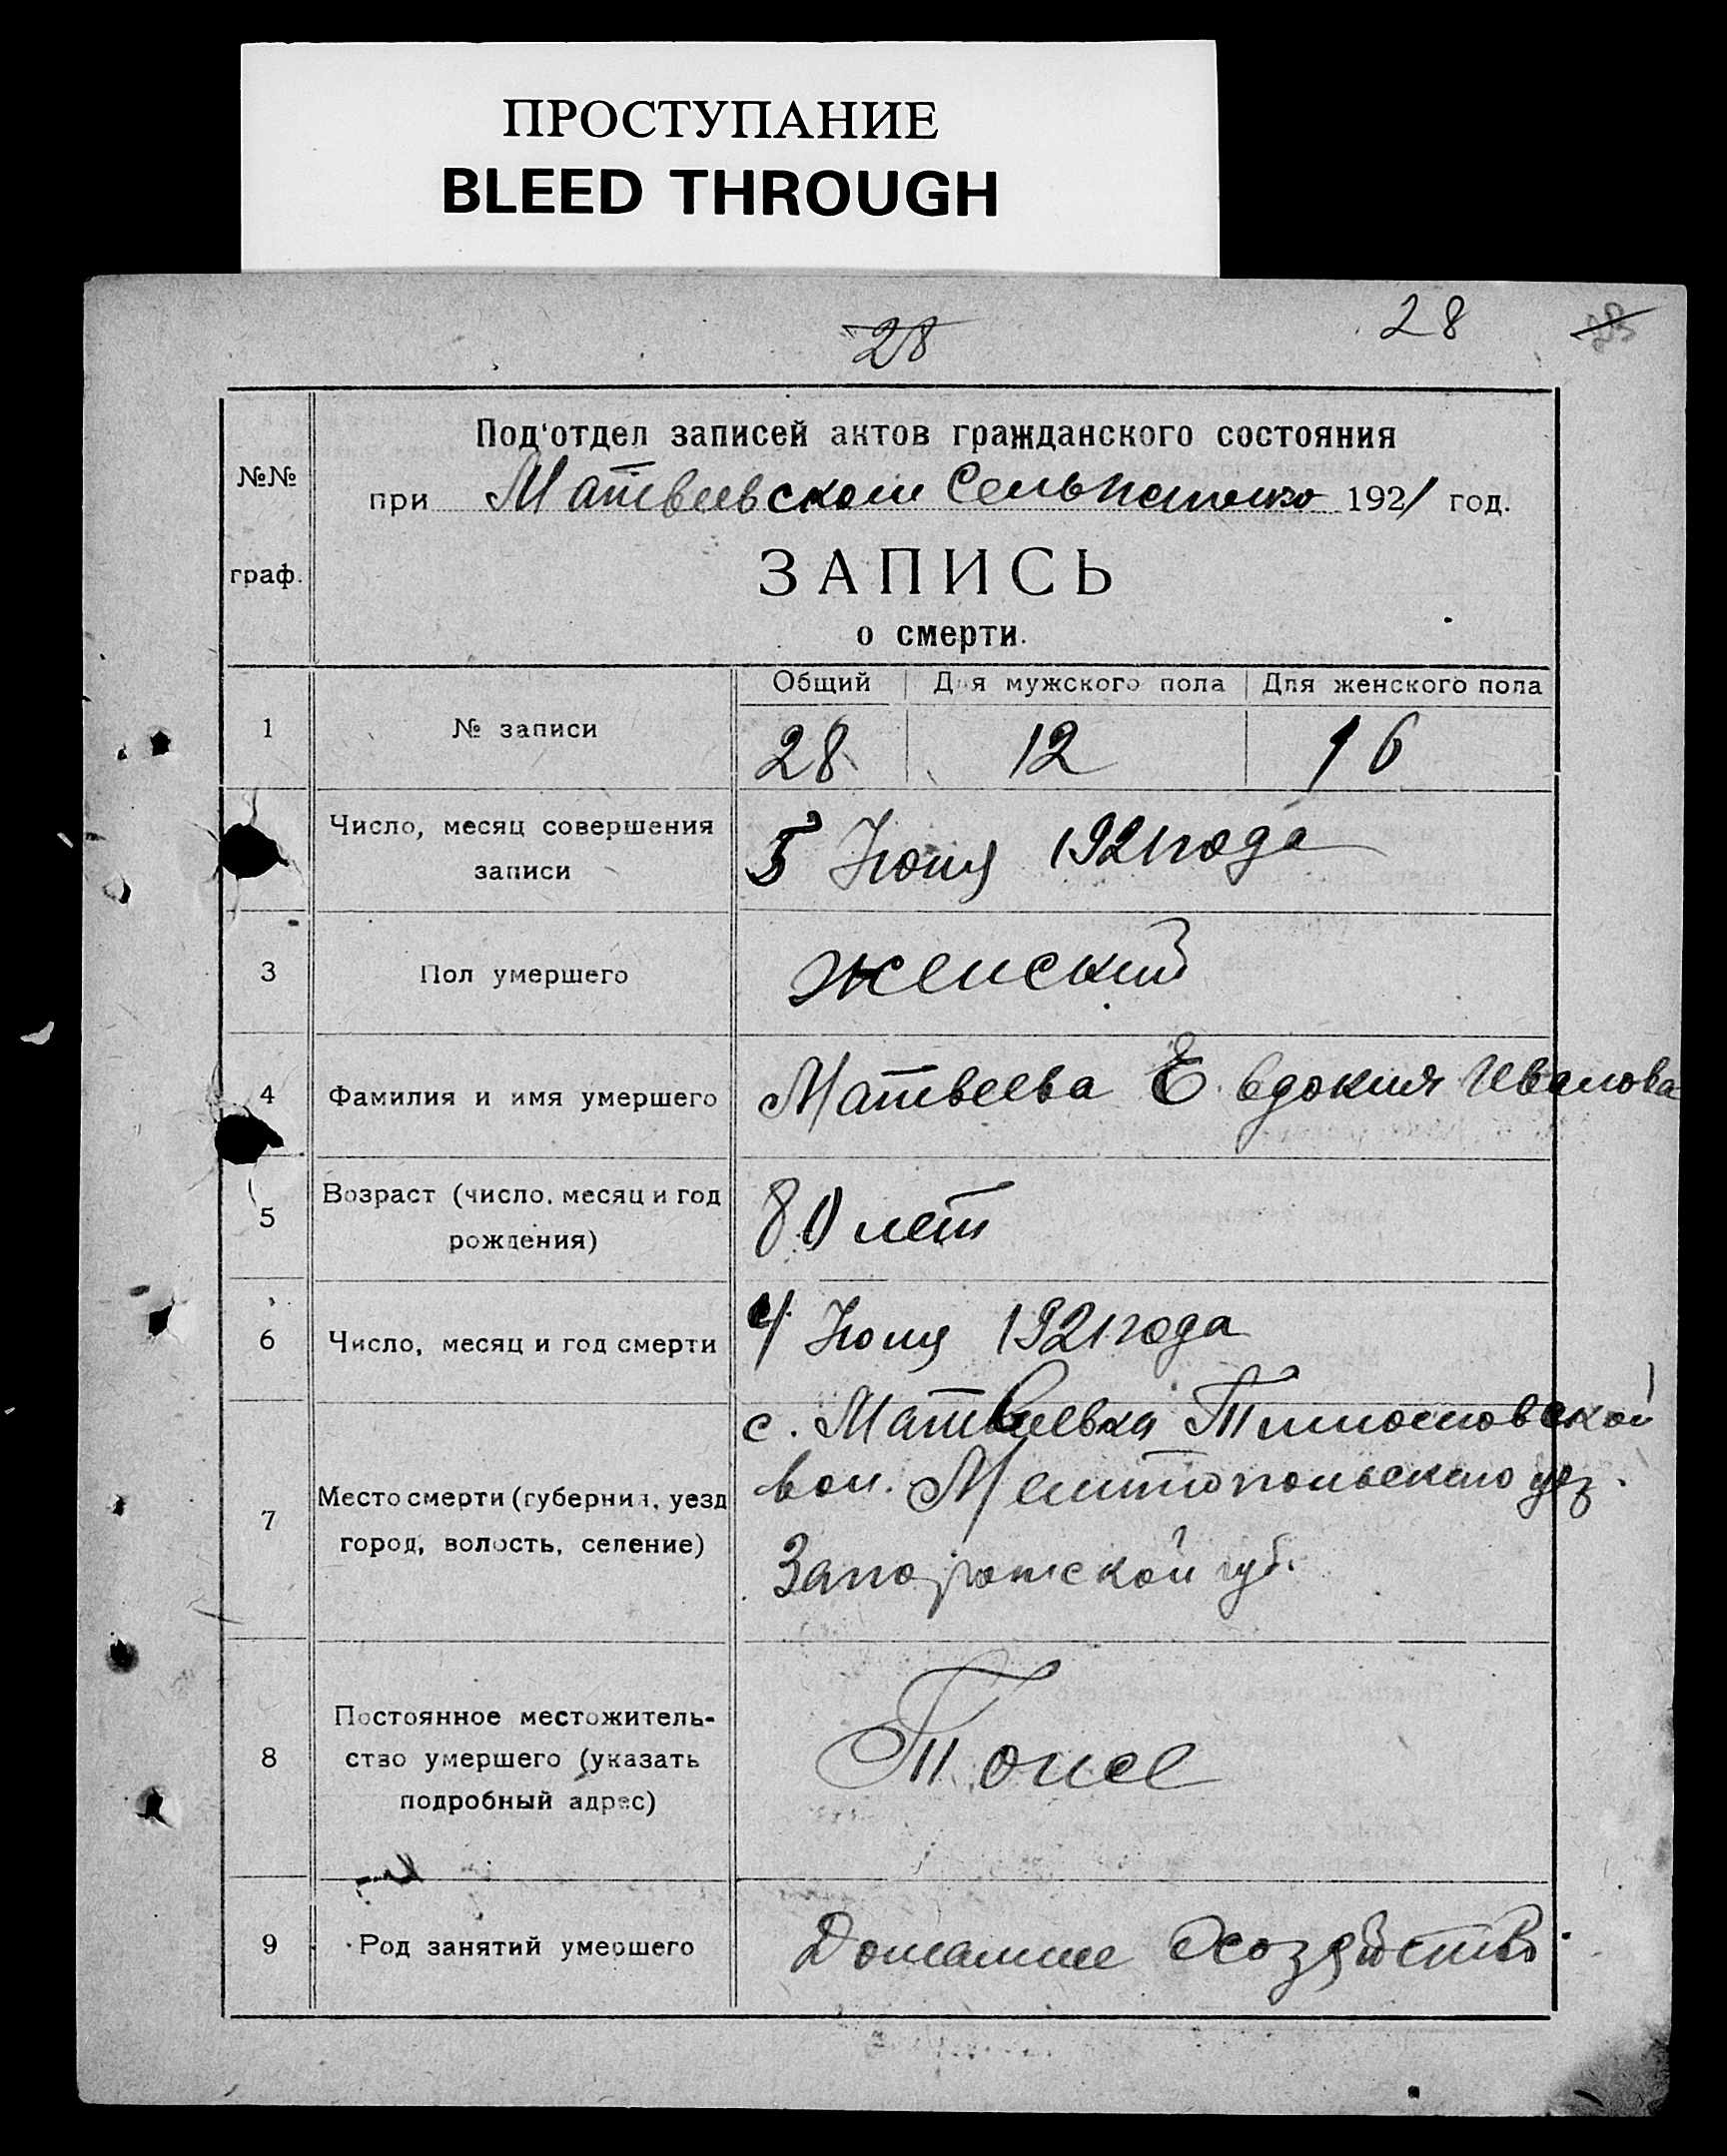 ПРОСТУПАНИЕ
BLEED THROUGH
28
28
Под'отдел записей актов гражданского состояния
№№
при Матвеевском 1921 год.
граф.
ЗАПИСЬ
о смерти.
Общий Для мужского пола Для женского пола
1 № записи 28 12 16
Число, месяц совершения
записи
5 Июня 1921 года
3 Пол умершего женский
4 Фамилия и имя умершего Матвеева Евдокия Иванова
5 Возраст (число, месяц и год
рождения)
80 лет
6 Число, месяц и год смерти 4 Июня 1921 года
7 Место смерти (губерния, уезд
город, волость, селение)
с. Матвеевка Тимошовской
вол. Мелитопольского уез.
Запорожской губ.
8 Постоянное местожитель-
ство умершего (указать
подробный адрес)
Тоже
9 Род занятий умершего Домашнее хозяйство